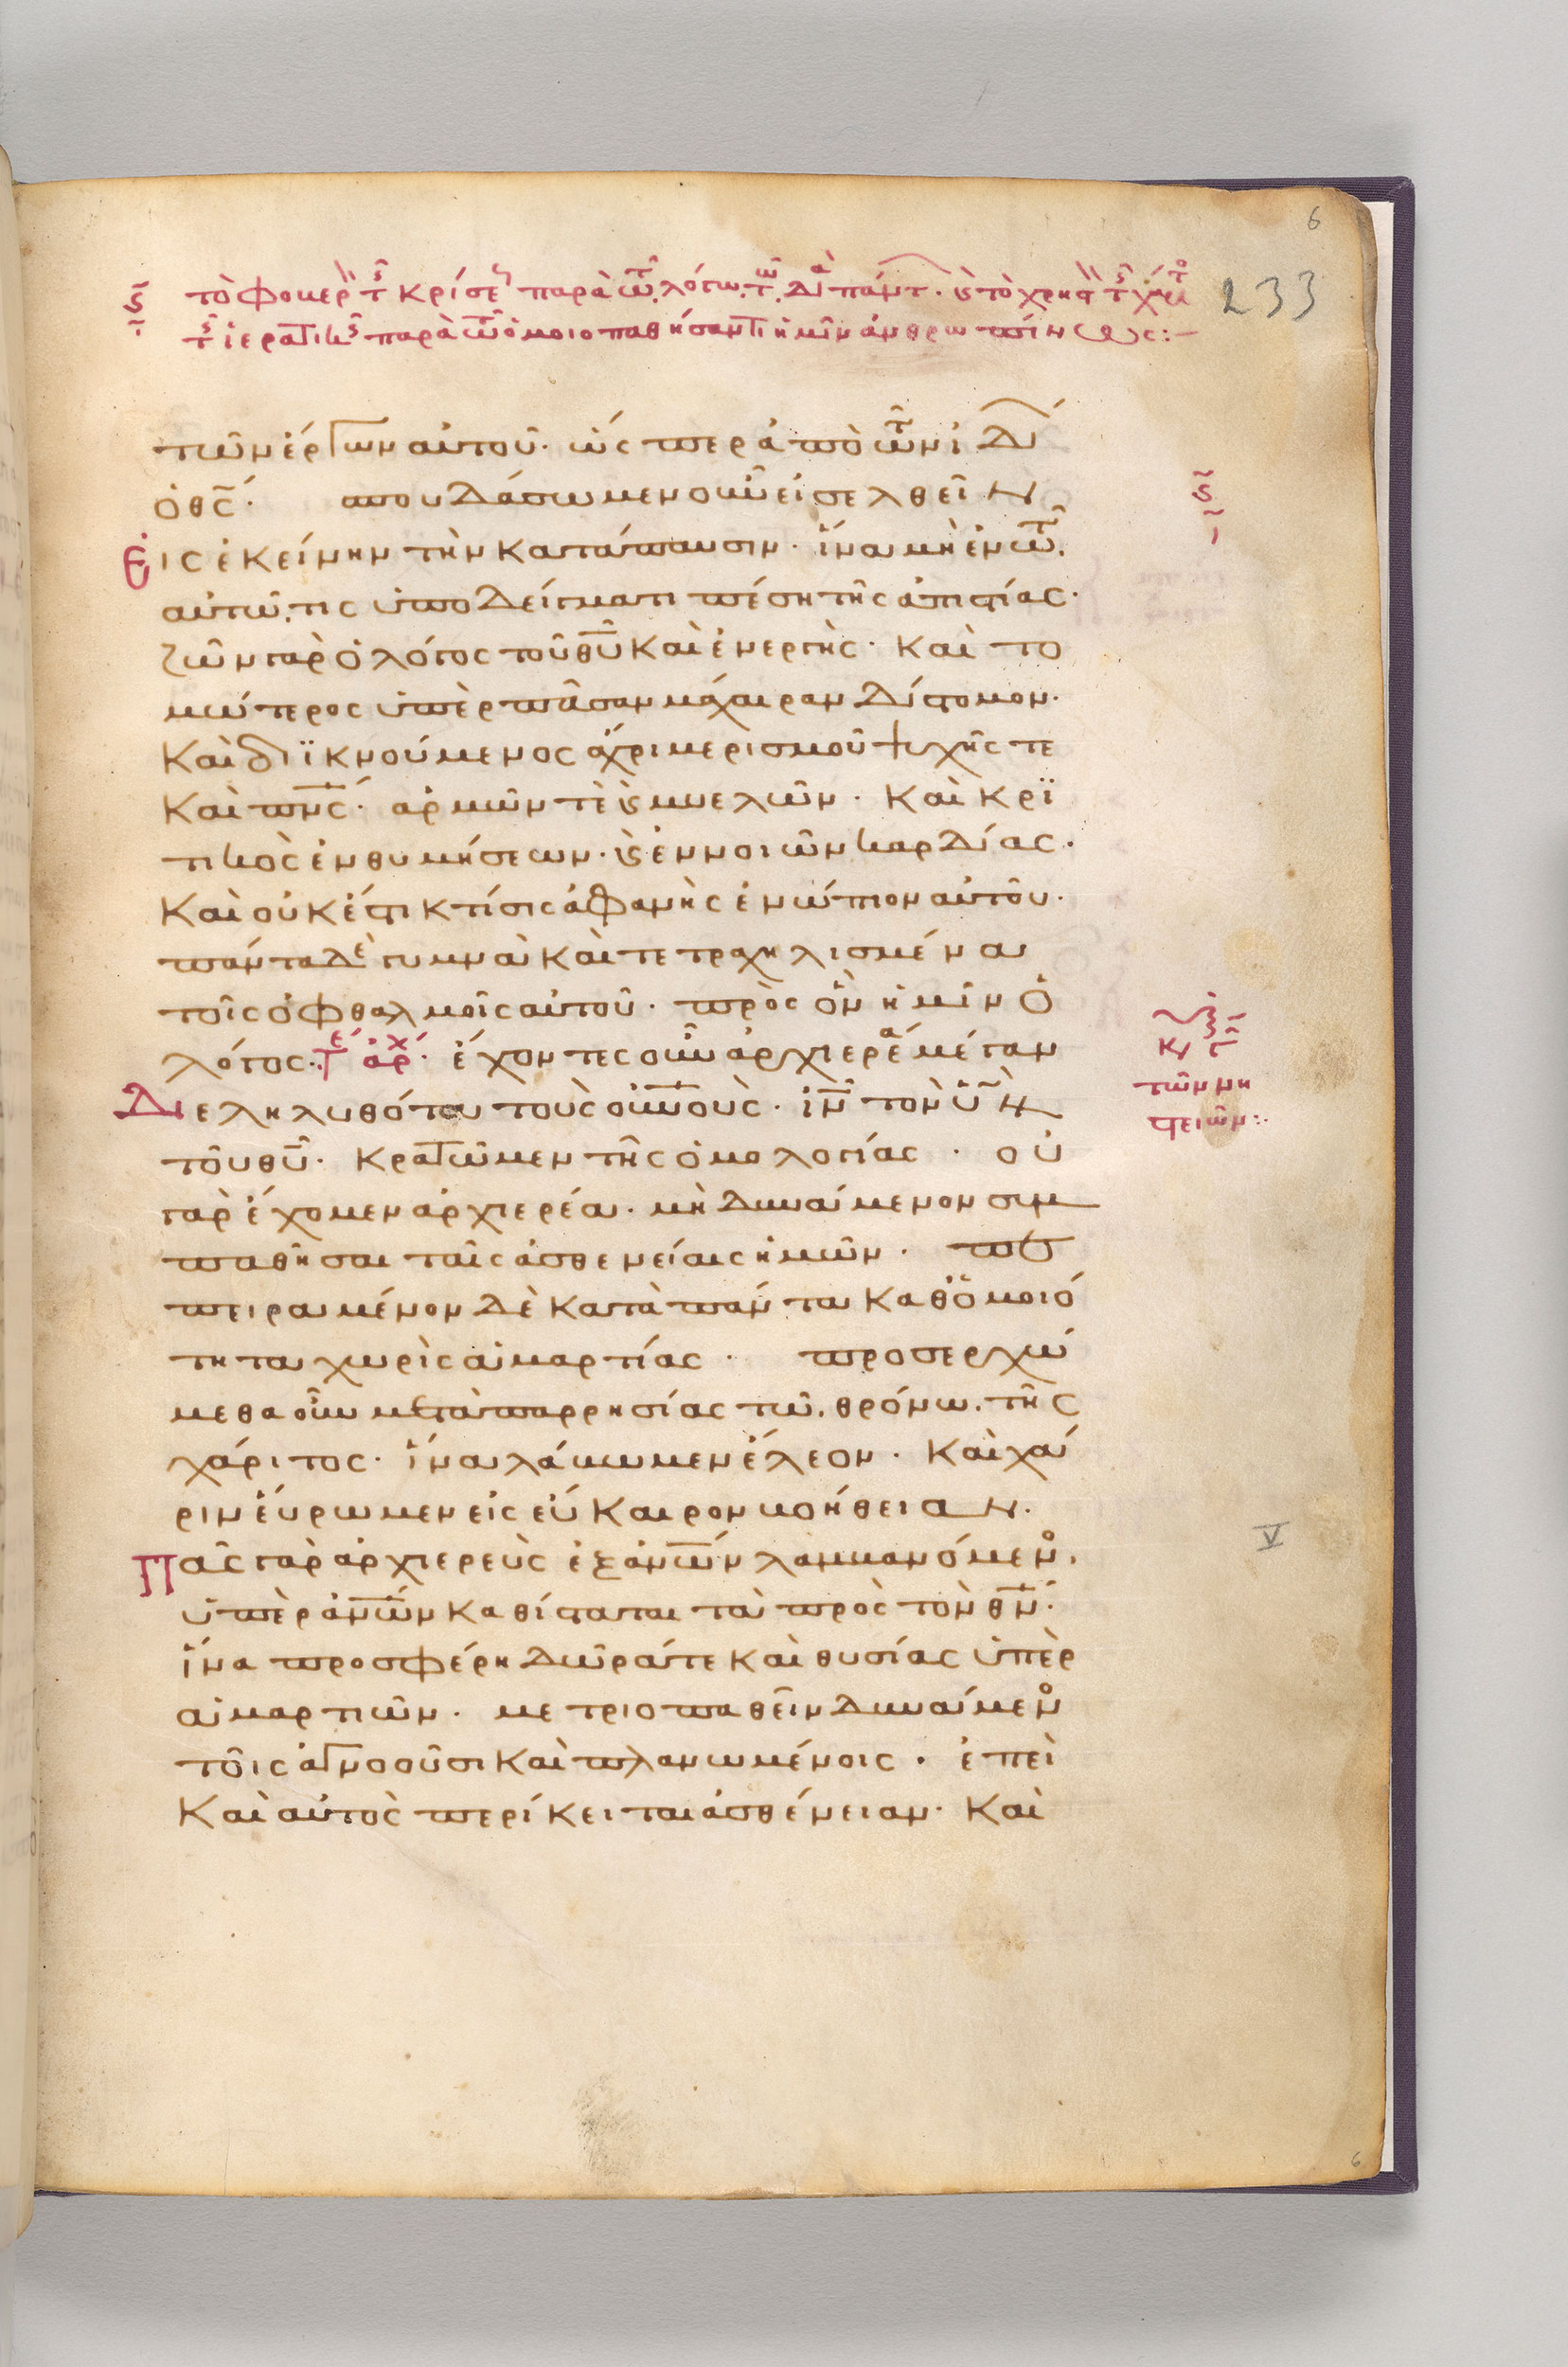 6
233
ϛ τὸ φοβερ τ κρίσε παρὰ τῶ λόγω τῶ δια πάντ. κ τὸ χρηστ τ χάριτο
τ ἱερατικ παρὰ τῶ ὁμοιοπαθήσαντι ἡμῖν ἀνθρωπίνως:-
τῶν ἔργων αὐτοῦ· ὥσπερ ἀπὸ τῶν ἰδί
ὁ θς· σπουδάσωμεν οὖν εἰσελθεῖν
Εἰς ἐκείνην τὴν κατάπαυσιν· ἵνα μὴ ἐν τῶ
αὐτῶ τις ὑποδείγματι πέση τῆς ἀπιστίας·
ζῶν γὰρ ὁ λόγος τοῦ θυ καὶ ἐνεργής· καὶ το
μώτερος ὑπὲρ πᾶσαν μάχαιραν δίστομον·
καὶ διϊκνούμενος ἄχρι μερισμοῦ ψυχῆς τε
καὶ πνς· ἁρμῶν τὲ κ μυελῶν· καὶ κρϊ
τικὸς ἐνθυμήσεων· κ ἐννοιῶν καρδίας·
καὶ οὐκ ἔστι κτίσις ἀφανὴς ἐνώπιον αὐτοῦ·
πάντα δὲ γυμνὰ καὶ τετραχηλισμένα
τοῖς ὀφθαλμοῖς αὐτοῦ· πρὸς ὃν ἡμῖν ὁ
λόγος· τε ἀρχ· ἔχοντες οὖν ἀρχιερέα μέγαν
Διεληλυθότα τοὺς οὐνοὺς· ἰν τὸν ὑν
τοῦ θυ· κρατῶμεν τῆς ὁμολογίας· οὐ
γὰρ ἔχομεν ἀρχιερέα· μὴ δυνάμενον συμ
παθῆσαι ταῖς ἀσθενείαις ἡμῶν· πε
πειραμένον δὲ κατὰ πάντα καθ ὁμοιό
τητα χωρὶς ἁμαρτίας· προσερχώ
μεθα οὖν μετὰ παρρησίας τῶ θρόνω τῆς
χάριτος· ἵνα λάβωμεν ἔλεον· καὶ χά
ριν εὕρωμεν εἰς εὔκαιρον βοήθειαν·
Πᾶς γὰρ ἀρχιερεὺς ἐξ ἀνων λαμβανόμενο
ὑπὲρ ἀνων καθίσταται τὰ πρὸς τὸν θν·
ἵνα προσφέρη δῶρά τε καὶ θυσίας ὑπὲρ
ἁμαρτιῶν· μετριοπαθεῖν δυνάμενο
τοῖς ἀγνοοῦσι καὶ πλανωμένοις· ἐπεὶ
καὶ αὐτὸς περίκειται ἀσθένειαν· καὶ
ϛ
τῶν νη
στειῶν:
V
6